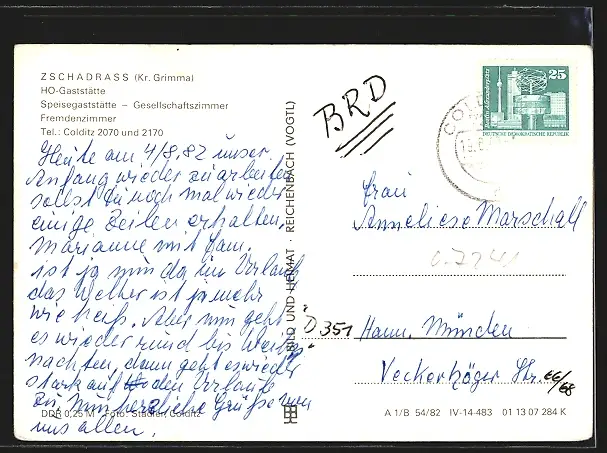 ZSCHADRASS (Kr. Grimma)
HO-Gaststätte
Speisegaststätte – Gesellschaftszimmer
Fremdenzimmer
Tel.: Colditz 2070 und 2170
Heute am 4/8.82 unser
Anfang wieder zu arbeiten
sollst Du noch mal wieder
einige Zeilen erhalten.
Marianne mit Fam.
ist ja nun da im Urlaub
das Wetter ist ja mehr
wie heiß. Aber nun geht
es wieder rund bis Weih
nachten, dann geht es wieder
stark auf den Urlaub
zu. Nun herzliche Grüße von
uns allen.
DDR 0,25 M · Foto: Stadler, Colditz
BILD UND HEIMAT · REICHENBACH (VOGTL)
BRD
25
Berlin, Alexanderplatz
DEUTSCHE DEMOKRATISCHE REPUBLIK
Frau
Anneliese Marschall
"D 351" Hann. Münden
Veckerhäger Str. 66/68
A 1/B 54/82 IV-14-483 01 13 07 284 K